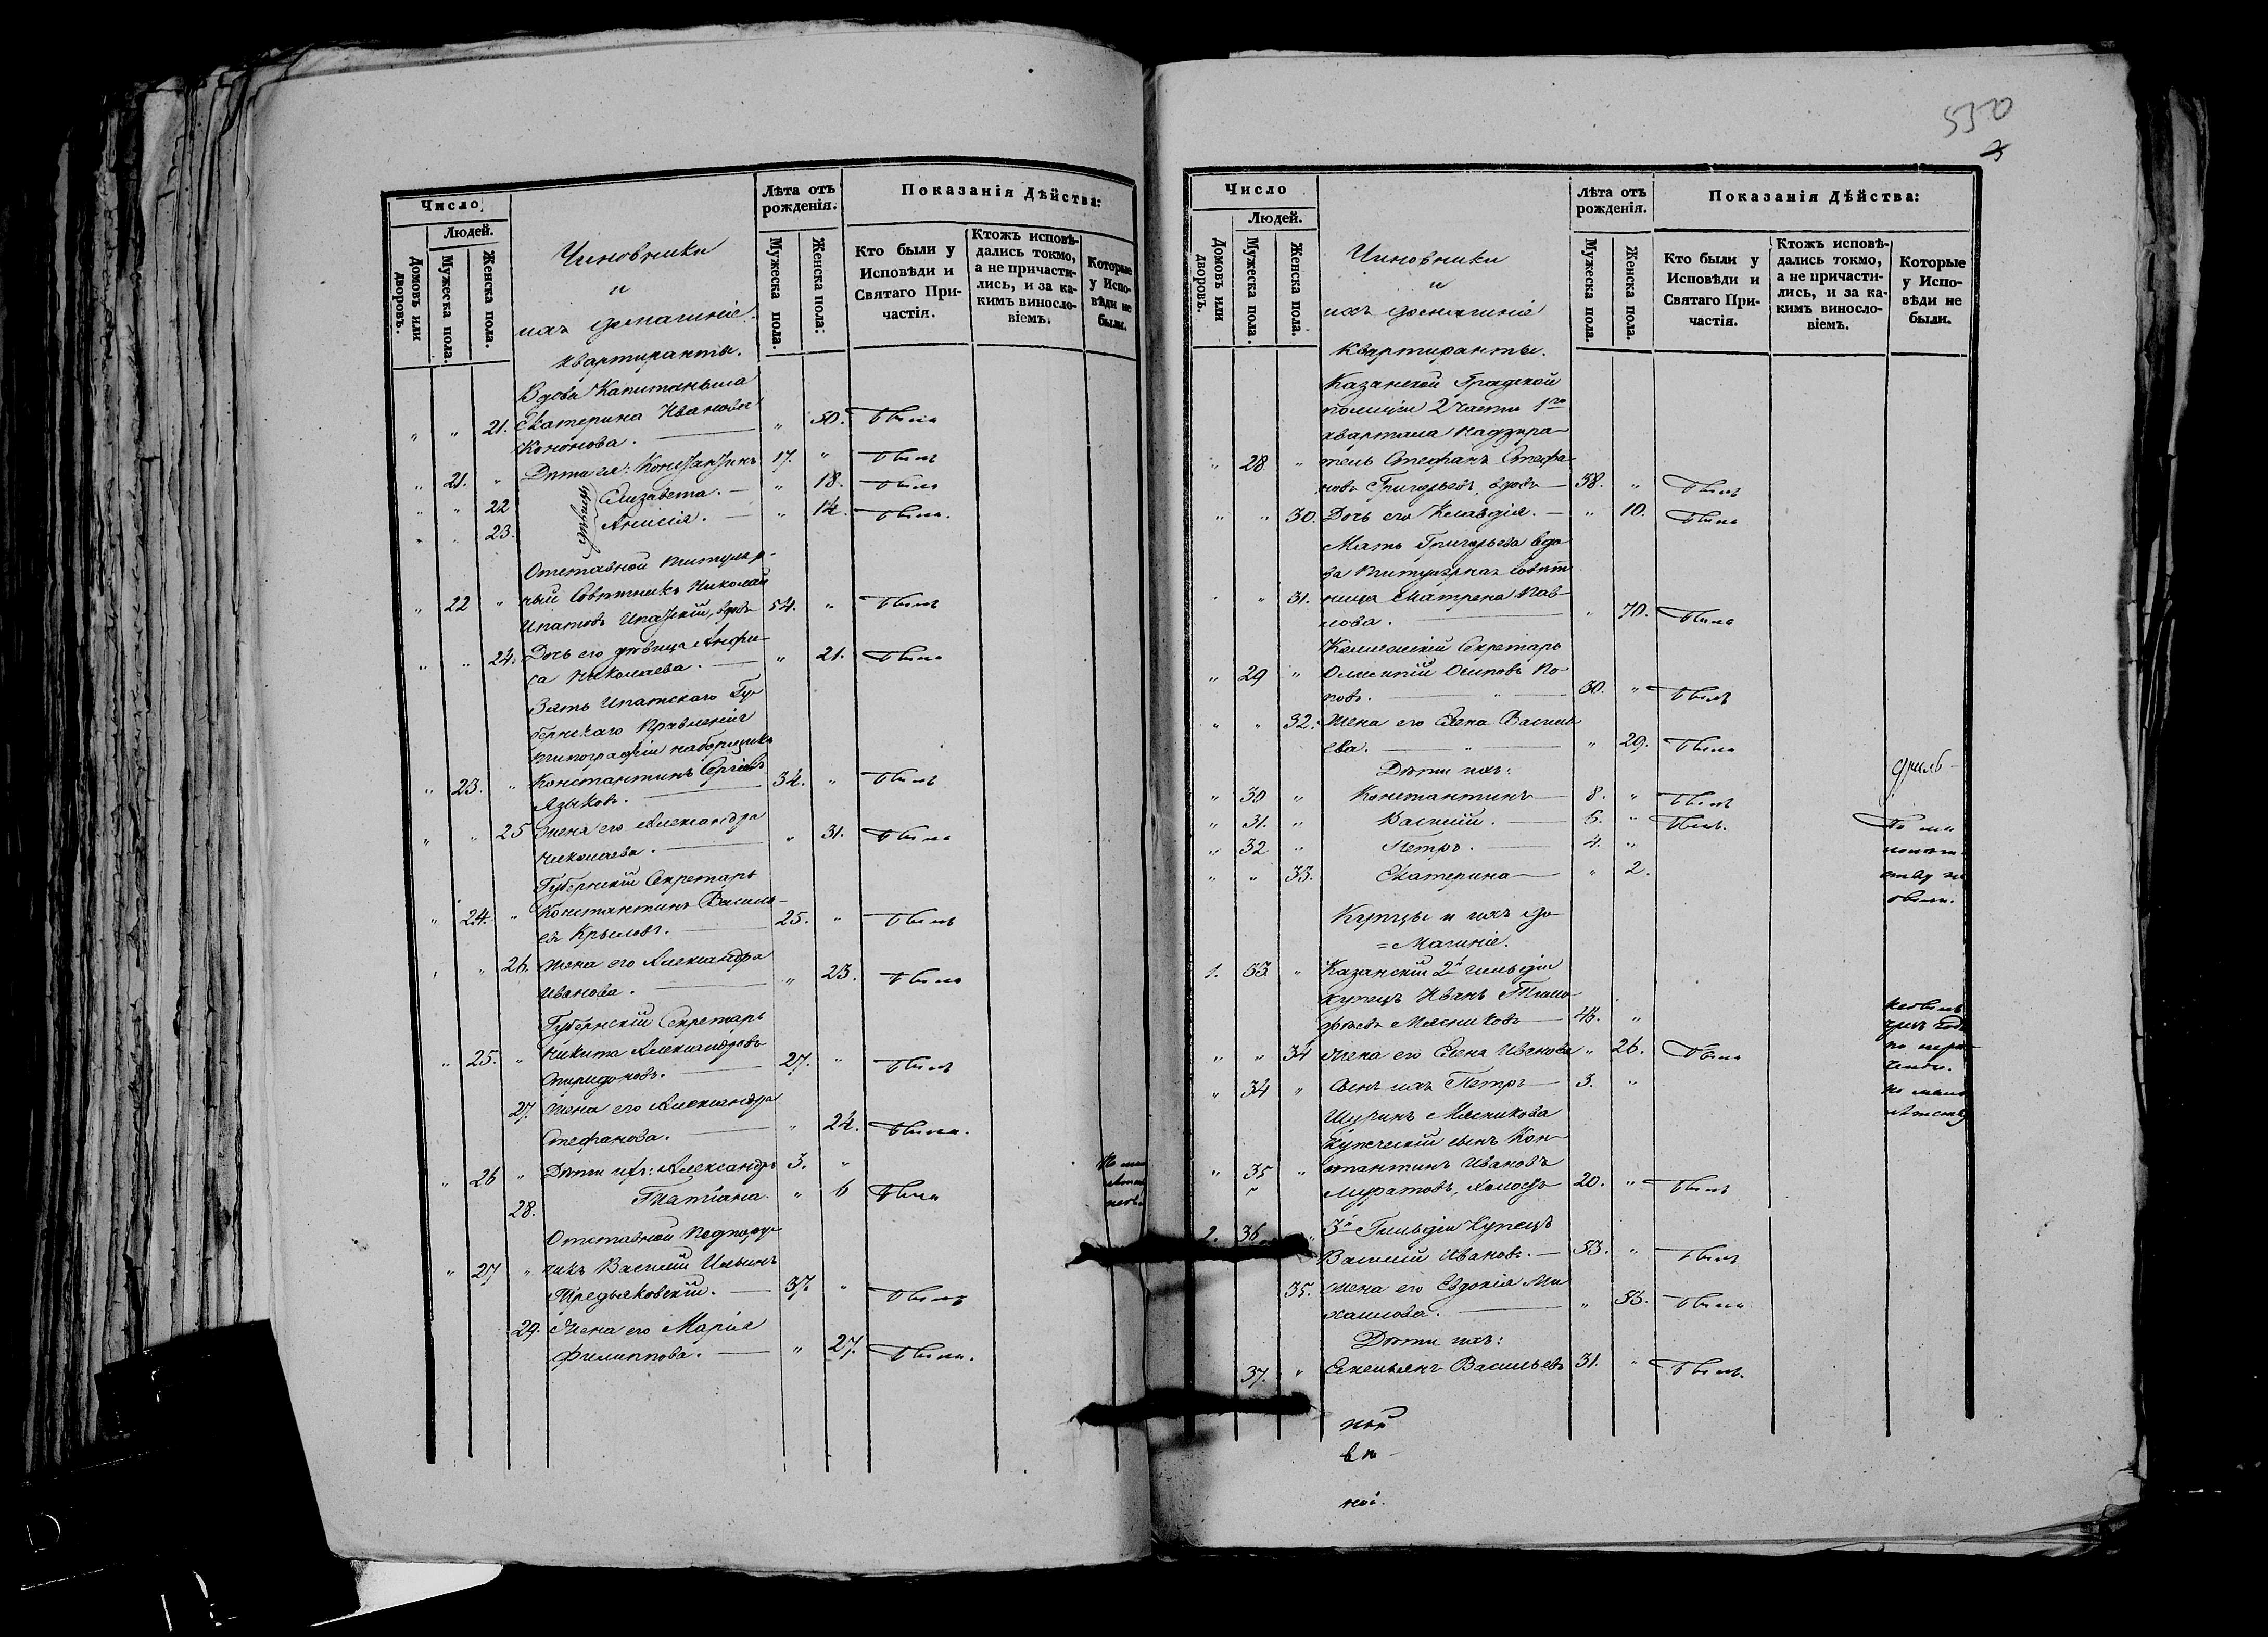 Число
Людей.
Домовъ или дворовъ.
Мужеска пола.
Женска пола.
Чиновники
и
ихъ домашніе
квартиранты.
Лѣта отъ рожденія.
Мужеска пола.
Женска пола.
Показанія Дѣйства:
Кто были у Исповѣди и Святаго Причастія.
Ктожъ исповѣдались токмо, а не причастились, и за какимъ винословіемъ.
Которые у Исповѣди не были.
Вдова Капитанша
„ „ 21. Екатерина Иванова „ 50. была
Кононова.
„ 21. „ Дѣти ея: Константинъ 17. „ былъ
„ „ 22 Елизавета. „ 18. была
„ „ 23. Анисія. „ 14. была.
дѣвицы
Отставной Титуляр-
ный Совѣтникъ Николай
„ 22 „ Ипатовъ Ипатскій, вдовъ 54. „ былъ
„ „ 24. Дочь его дѣвица Анфи-
са Николаева. „ 21. была
Зять Ипатскаго Гу-
бернскаго Правленія
типографіи наборщикъ
„ 23. „ Константинъ Сергѣевъ 34. „ былъ
Языковъ.
„ „ 25 Жена его Александра
Николаева. „ 31. была
Губернскій Секретарь
„ 24. „ Константинъ Василь-
евъ Крыловъ. 25. „ былъ
„ 26. Жена его Александра
Иванова. „ 23. была
Губернскій Секретарь
„ 25. „ Никита Александровъ
Спиридоновъ. 27. „ былъ
27. Жена его Александра
Стефанова. „ 24. была.
„ 26 „ Дѣти ихъ: Александръ 3. „
28. Татіана. „ 6 была
Отставной Подпору-
„ 27 „ чикъ Василій Ильинъ
Тредьяковскій. 37. „ былъ
29. Жена его Марія
Филиппова. „ 27. была.
530
3
Число
Людей.
Домовъ или дворовъ.
Мужеска пола.
Женска пола.
Чиновники
и
ихъ домашніе
Квартиранты.
Лѣта отъ рожденія.
Мужеска пола.
Женска пола.
Показанія Дѣйства:
Кто были у Исповѣди и Святаго Причастія.
Ктожъ исповѣдались токмо, а не причастились, и за какимъ винословіемъ.
Которые у Исповѣди не были.
Казанской Градской
полиціи 2 части 1го
квартала надзира-
„ 28 „ тель Стефанъ Стефа-
новъ Григорьевъ, вдовъ 58. „ былъ
„ „ 30. Дочь его Клавдія. „ 10. была
Мать Григорьева вдо-
ва титулярная совѣт
„ „ 31. ница Матрена Пав-
лова. „ 70. была
Коллежскій Секретарь
„ 29 „ Осиповъ По-
повъ. 30. „ былъ
„ „ 32. Жена его Елена Василь
ева. „ 29. была
Дѣти ихъ:
„ 30 „ Константинъ 8. „ былъ
„ 31. „ Василій. 6. „ былъ.
„ 32 „ Петръ. 4. „
„ „ 33. Екатерина „ 2.
Купцы и ихъ до-
=машніе.
1. 33 „ Казанскій 2й гильдіи
купецъ Иванъ Тимо
фѣевъ Мясниковъ 46. „
„ „ 34 Жена его Елена Иванова „ 26. была
„ 34 „ Сынъ ихъ Петръ 3. „
Шуринъ Мясникова
Купеческій сынъ Кон-
„ 35 „ стантинъ Ивановъ
Муратовъ, холостъ 20. „ былъ
2. 36. „ 3й Гильдіи Купецъ
Василій Ивановъ. 53. „ былъ
35. Жена его Евдокія Ми
хайлова. „ 53. была
Дѣти ихъ:
37. „ Емельянъ Васильевъ 31. „ былъ.